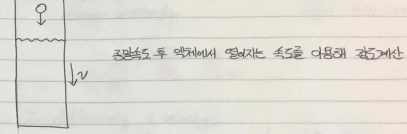 종말속도 후 액체에서 떨어지는 속도를 이용해 점도계산
v